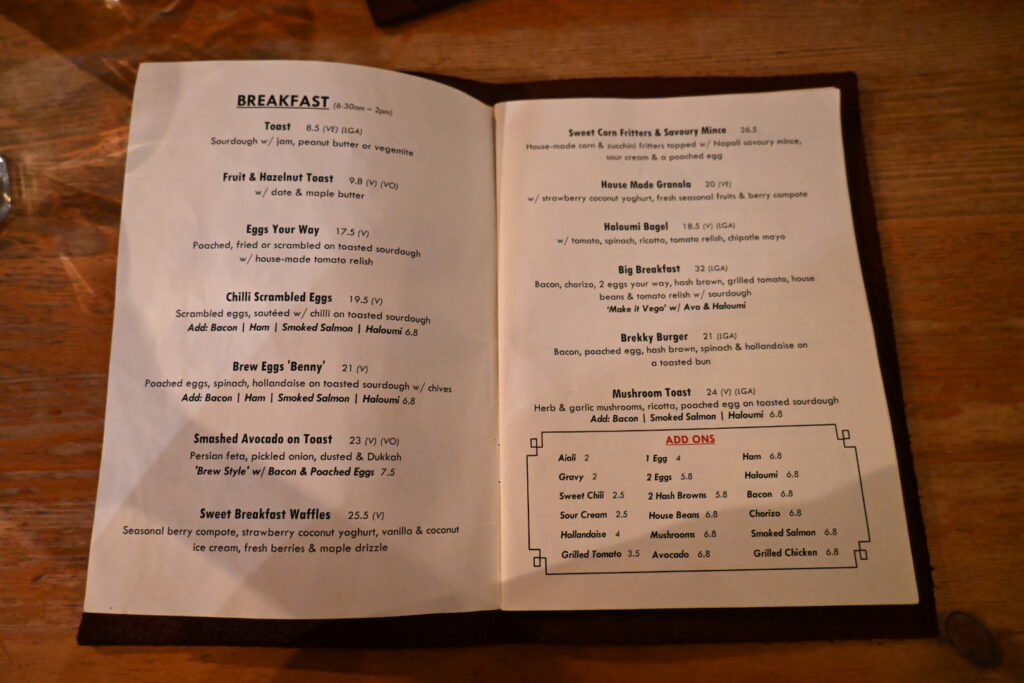 BREAKFAST (6:30am – 2pm)
Toast 8.5 (VE) (LGA)
Sourdough w/ jam, peanut butter or vegemite
Fruit & Hazelnut Toast 9.8 (V) (VO)
w/ date & maple butter
Eggs Your Way 17.5 (V)
Poached, fried or scrambled on toasted sourdough
w/ house-made tomato relish
Chilli Scrambled Eggs 19.5 (V)
Scrambled eggs, sautéed w/ chilli on toasted sourdough
Add: Bacon | Ham | Smoked Salmon | Haloumi 6.8
Brew Eggs 'Benny' 21 (V)
Poached eggs, spinach, hollandaise on toasted sourdough w/ chives
Add: Bacon | Ham | Smoked Salmon | Haloumi 6.8
Smashed Avocado on Toast 23 (V) (VO)
Persian feta, pickled onion, dusted & Dukkah
'Brew Style' w/ Bacon & Poached Eggs 7.5
Sweet Breakfast Waffles 25.5 (V)
Seasonal berry compote, strawberry coconut yoghurt, vanilla & coconut
ice cream, fresh berries & maple drizzle
Sweet Corn Fritters & Savoury Mince 26.5
House-made corn & zucchini fritters topped w/ Napoli savoury mince,
sour cream & a poached egg
House Made Granola 20 (VE)
w/ strawberry coconut yoghurt, fresh seasonal fruits & berry compote
Haloumi Bagel 18.5 (V) (LGA)
w/ tomato, spinach, ricotta, tomato relish, chipotle mayo
Big Breakfast 32 (LGA)
Bacon, chorizo, 2 eggs your way, hash brown, grilled tomato, house
beans & tomato relish w/ sourdough
'Make it Vego' w/ Avo & Haloumi
Brekky Burger 21 (LGA)
Bacon, poached egg, hash brown, spinach & hollandaise on
a toasted bun
Mushroom Toast 24 (V) (LGA)
Herb & garlic mushrooms, ricotta, poached egg on toasted sourdough
Add: Bacon | Smoked Salmon | Haloumi 6.8
ADD ONS
Aioli 2 1 Egg 4 Ham 6.8
Gravy 2 2 Eggs 5.8 Haloumi 6.8
Sweet Chili 2.5 2 Hash Browns 5.8 Bacon 6.8
Sour Cream 2.5 House Beans 6.8 Chorizo 6.8
Hollandaise 4 Mushrooms 6.8 Smoked Salmon 6.8
Grilled Tomato 3.5 Avocado 6.8 Grilled Chicken 6.8